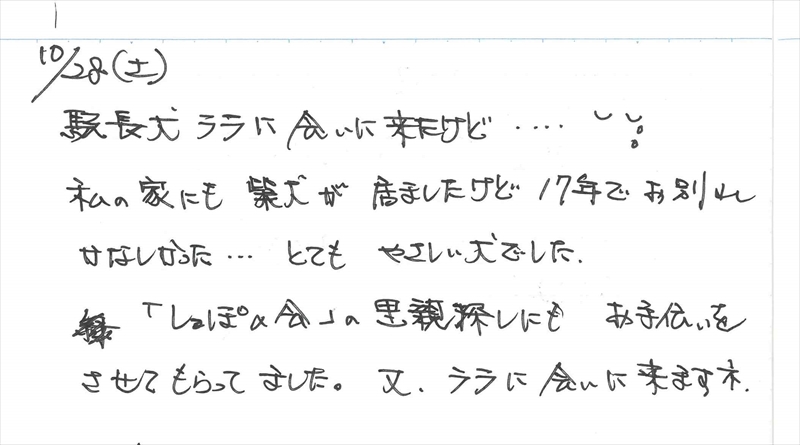 10/28(土)
駅長犬ララに会いに来たけど‥‥
私の家にも 柴犬が 居ましたけど 17年でお別れ
かなしかった… とても やさしい犬でした.
「しっぽの会」の里親探しにも お手伝いを
させてもらってました。又、ララに会いに来ますネ.